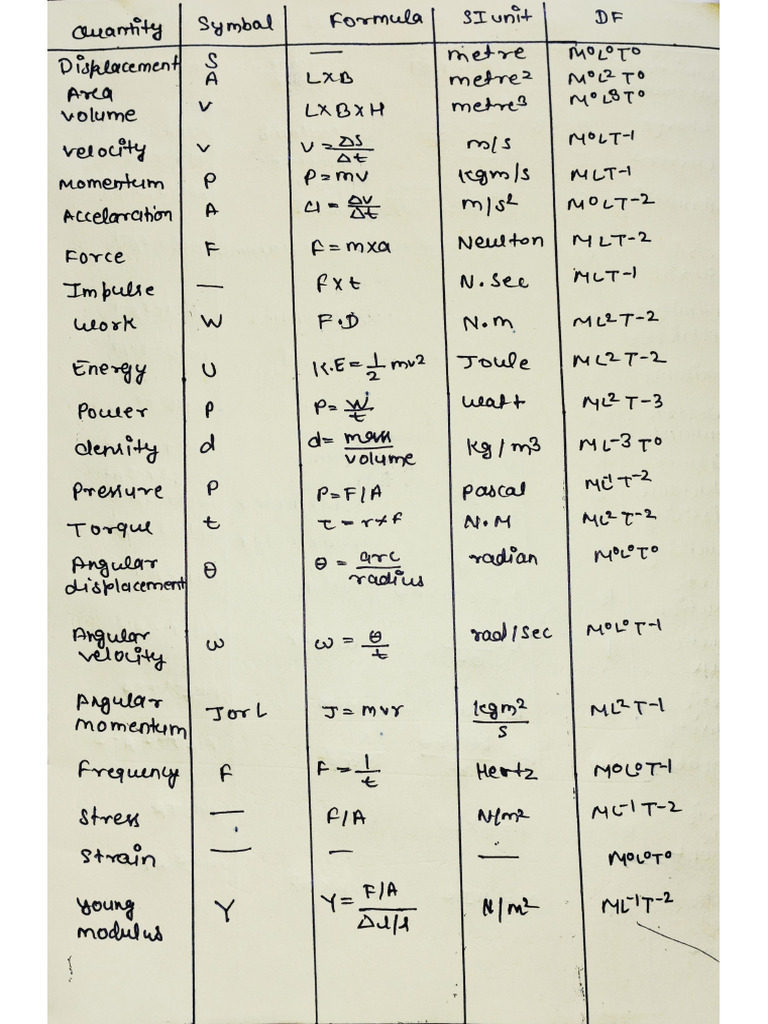 Quantity Symbol Formula SI unit DF
Displacement S — metre M⁰L⁰T⁰
Area A L×B metre² M⁰L²T⁰
volume v L×B×H metre³ M⁰L³T⁰
velocity v v = Δs/Δt m/s M⁰LT-1
Momentum P P=mv kgm/s MLT-1
Accelaration A a = Δv/Δt m/s² M⁰LT-2
Force F F=m×a Newton MLT-2
Impulse — F×t N.Sec MLT-1
Work W F.D N.m ML²T-2
Energy U K.E = 1/2 mv² Joule ML²T-2
Power P P= W/t watt ML²T-3
density d d= mass/volume kg/m³ ML-3T⁰
Pressure P P=F/A pascal ML-1T-2
Torque t τ=r×f N.M ML²T-2
Angular displacement θ θ = arc/radius radian M⁰L⁰T⁰
Angular velocity ω ω = θ/t rad/sec M⁰L⁰T-1
Angular momentum J or L J=mvr kgm²/s ML²T-1
Frequency F F = 1/t Hertz M⁰L⁰T-1
Stress — F/A N/m² ML-1T-2
Strain — — — M⁰L⁰T⁰
Young modulus Y Y= F/A / Δl/l N/m² ML-1T-2